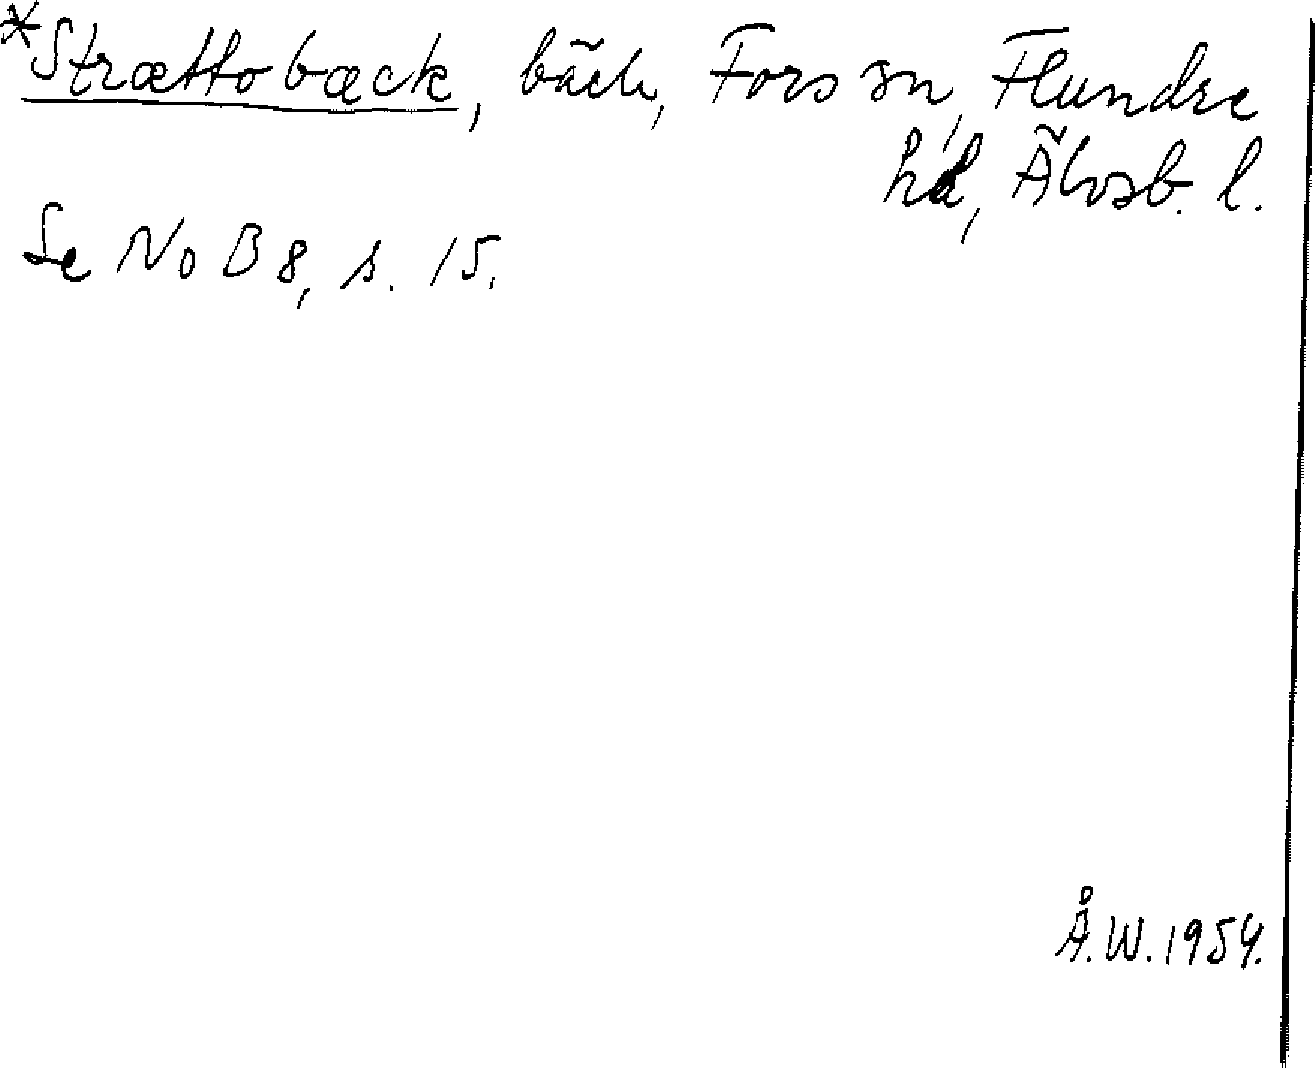 *Strættobæck, bäck, Fors sn, Flundre
hd, Älvsb. l.
Se NoB 8, s. 15.
Å.W. 1954.